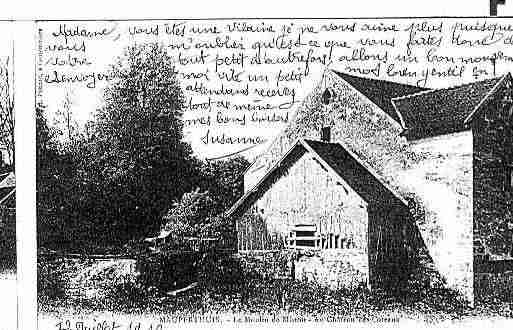 Madame, vous êtes une vilaine je ne vous aime plus puisque
vous m'oublier qu'est ce que vous faites donc
votre tout petit d'autrefois, allons un bon mouvement
envoyer moi vite un petit mot bien gentil en
attendant recevez
tout de même
mes bons baisers
Susanne
MAUPERTHUIS. - Le Moulin de Mistou - au Château des
12 Juillet